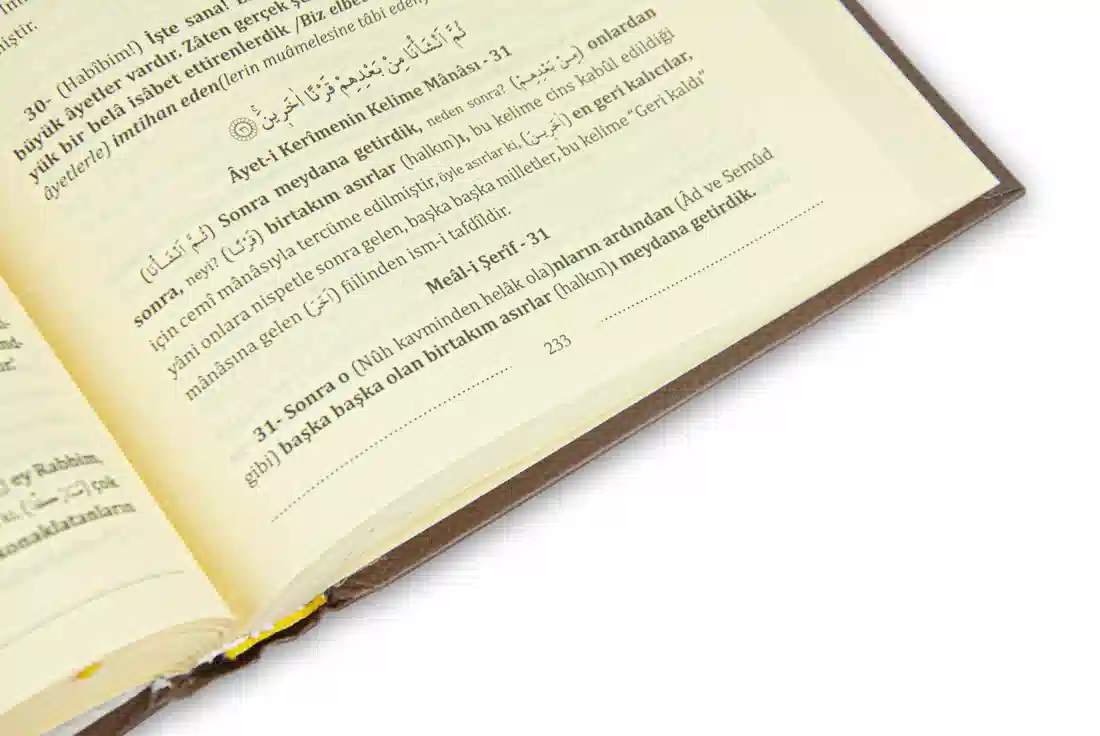 miştir.
30- (Habîbim!) İşte sana!
büyük âyetler vardır. Zâten gerçek
yük bir belâ isâbet ettirenlerdik /Biz
âyetlerle) imtihan eden(lerin muâmelesine tâbi
ثُمَّ اَنْشَأْنَا مِنْ بَعْدِهِمْ قَرْنًا اٰخَر۪ينَۚ ﴿٣١﴾
Âyet-i Kerîmenin Kelime Mânâsı - 31
(ثُمَّ اَنْشَأْنَا) Sonra meydana getirdik, neden sonra? (مِنْ بَعْدِهِمْ) onlardan
sonra, neyi? (قَرْنًا) birtakım asırlar (halkın)ı, bu kelime cins kabûl edildiği
için cemî mânâsıyla tercüme edilmiştir, öyle asırlar ki, (اٰخَر۪ينَ) en geri kalıcılar,
yâni onlara nispetle sonra gelen, başka başka milletler, bu kelime "Geri kaldı"
mânâsına gelen (اَخَرَ) fiilinden ism-i tafdîldir.
Meâl-i Şerîf - 31
31- Sonra o (Nûh kavminden helâk ola)nların ardından (Âd ve Semûd
gibi) başka başka olan birtakım asırlar (halkın)ı meydana getirdik.
233
ey Rabbim,
çok
konaklatanların